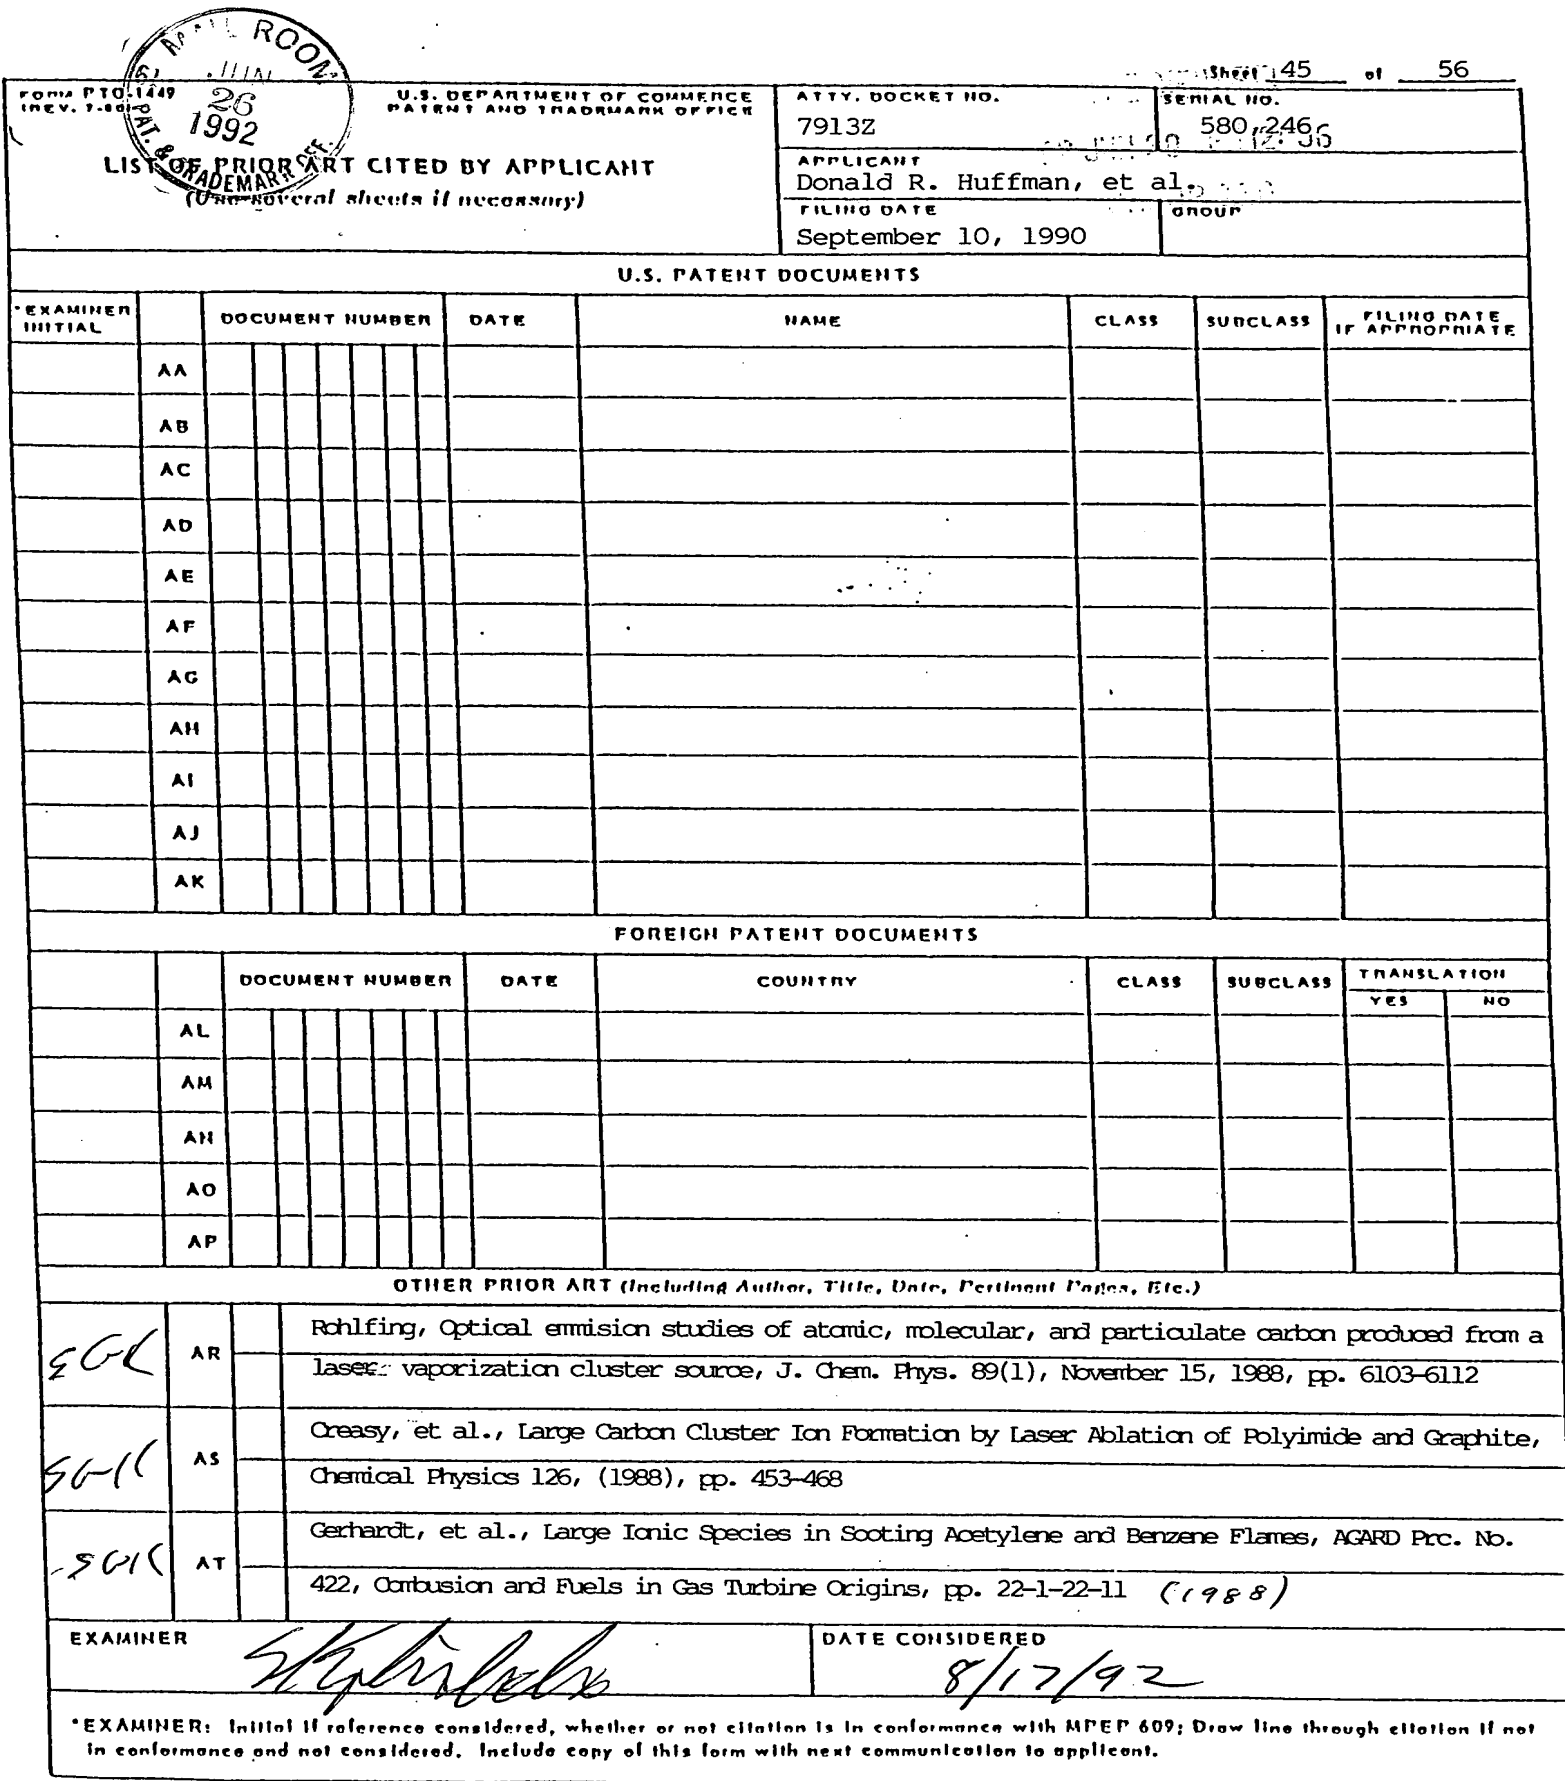 MAIL ROOM
JUN
26
1992
PAT. & TRADEMARK OFF.
Sheet 45 of 56
FORM PTO-1449
U.S. DEPARTMENT OF COMMERCE
PATENT AND TRADEMARK OFFICE
ATTY. DOCKET NO.
7913Z
SERIAL NO.
580,246
LIST OF PRIOR ART CITED BY APPLICANT
(Use several sheets if necessary)
APPLICANT
Donald R. Huffman, et al.
FILING DATE
September 10, 1990
GROUP
U.S. PATENT DOCUMENTS
*EXAMINER INITIAL DOCUMENT NUMBER DATE NAME CLASS SUBCLASS FILING DATE IF APPROPRIATE
AA
AB
AC
AD
AE
AF
AG
AH
AI
AJ
AK
FOREIGN PATENT DOCUMENTS
DOCUMENT NUMBER DATE COUNTRY CLASS SUBCLASS TRANSLATION
YES NO
AL
AM
AN
AO
AP
OTHER PRIOR ART (Including Author, Title, Date, Pertinent Pages, Etc.)
AR Rohlfing, Optical emmision studies of atomic, molecular, and particulate carbon produced from a
laser vaporization cluster source, J. Chem. Phys. 89(1), November 15, 1988, pp. 6103-6112
AS Creasy, et al., Large Carbon Cluster Ion Formation by Laser Ablation of Polyimide and Graphite,
Chemical Physics 126, (1988), pp. 453-468
AT Gerhardt, et al., Large Ionic Species in Sooting Acetylene and Benzene Flames, AGARD Prc. No.
422, Combusion and Fuels in Gas Turbine Origins, pp. 22-1-22-11 (1988)
EXAMINER
DATE CONSIDERED
8/17/92
*EXAMINER: Initial if reference considered, whether or not citation is in conformance with MPEP 609; Draw line through citation if not
in conformance and not considered. Include copy of this form with next communication to applicant.